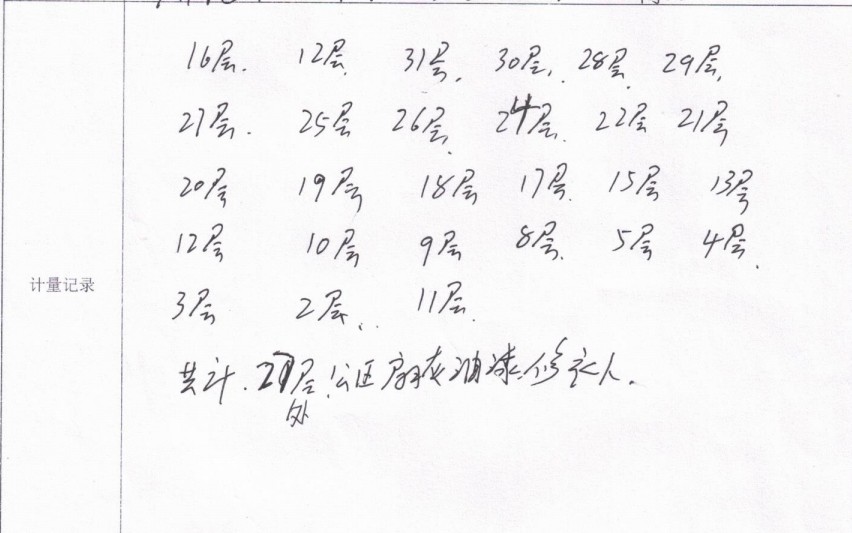 16层. 12层 31层. 30层. 28层. 29层.
27层. 25层 26层. 24层. 22层 21层
20层 19层 18层 17层. 15层 13层
12层 10层 9层 8层. 5层 4层.
计量记录
3层 2层. 11层.
共计. 27层公区刮灰油漆.修
处